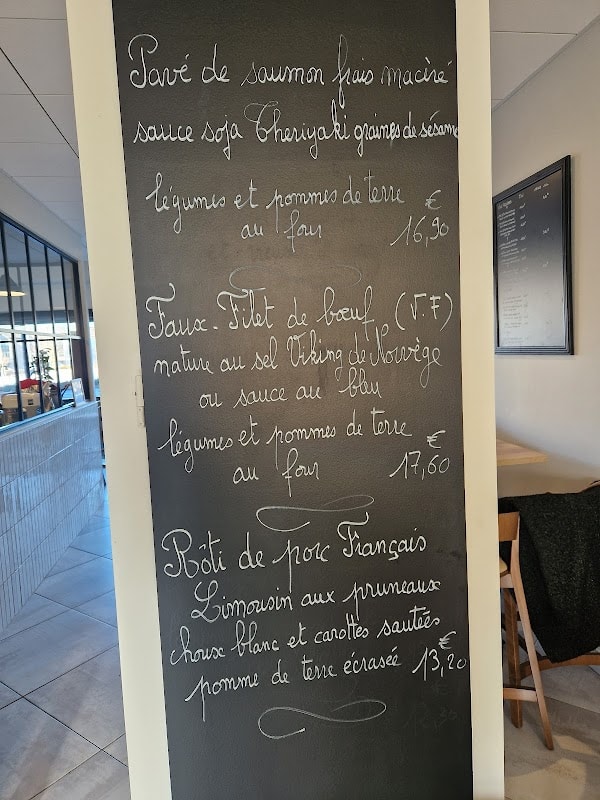 Pavé de saumon frais macéré
sauce soja Theriyaki graines de sésame
légumes et pommes de terre
au four 16,90 €
Faux-Filet de bœuf (V.F)
nature au sel Viking de Norvège
ou sauce au bleu
légumes et pommes de terre
au four 17,60 €
Rôti de porc Français
Limousin aux pruneaux
choux blanc et carottes sautées
pomme de terre écrasée 13,20 €